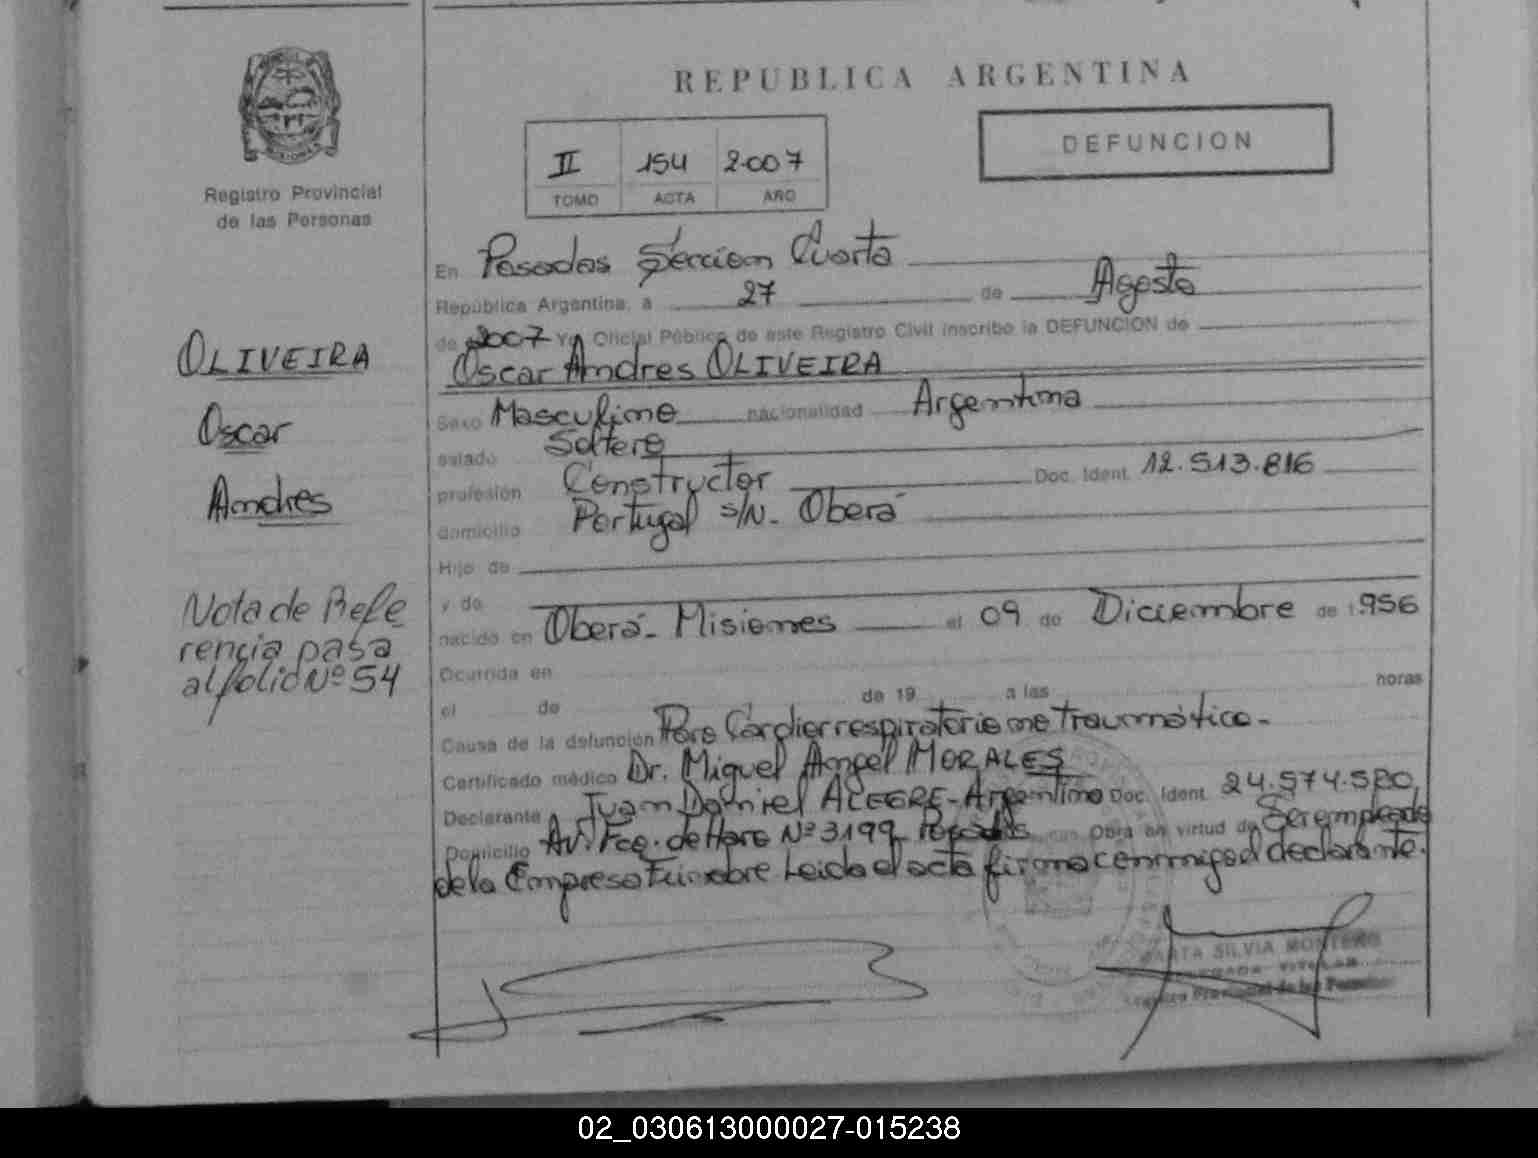 REPUBLICA ARGENTINA
DEFUNCION
II 154 2.007
TOMO ACTA AÑO
Registro Provincial
de las Personas
OLIVEIRA
Oscar
Andres
Nota de Refe
rencia pasa
al folio Nº 54
En Posadas Sección Cuarta
República Argentina, a 27 de Agosto
de 2007 Yo Oficial Público de este Registro Civil inscribo la DEFUNCION de
Oscar Andres OLIVEIRA
Sexo Masculino nacionalidad Argentina
estado Soltero
profesión Constructor Doc. Ident. 12.513.816
domicilio Portugal s/N. Oberá
Hijo de
y de
nacido en Oberá - Misiones el 09 de Diciembre de 1.956
Ocurrida en
el de de 19 a las horas
Causa de la defunción Paro Cardiorrespiratorio no traumático -
Certificado médico Dr. Miguel Angel MORALES
Declarante Juan Daniel ALEGRE - Argentino Doc. Ident. 24.574.580
Domicilio Av. Fco. de Haro Nº 3199 Posadas Obra en virtud de Ser empleado
de la Empresa Funebre Leida el acta firma conmigo el declarante.
MARTA SILVIA MONTERO
DELEGADA TITULAR
Registro Provincial de las Personas
02_030613000027-015238